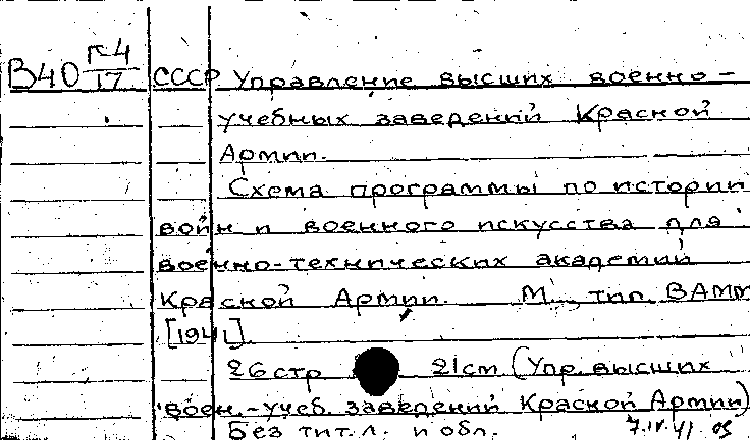 В40 п-4/17 СССР Управление высших военно-
учебных заведений Красной
Армии.
Схема программы по истории
войн и военного искусства для
военно-технических академий
Красной Армии. М., тип. ВАММ
[1941].
26 стр 21 см (Упр. высших
воен.-учеб. заведений Красной Армии)
Без тит. л. и обл. 7.IV.41